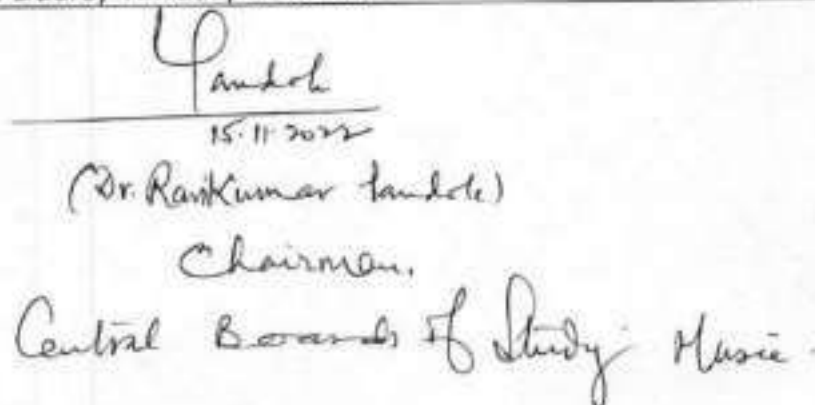 Pandole
15.11.2022
(Dr. RaviKumar Pandole)
Chairman.
Central Board of Study Music.